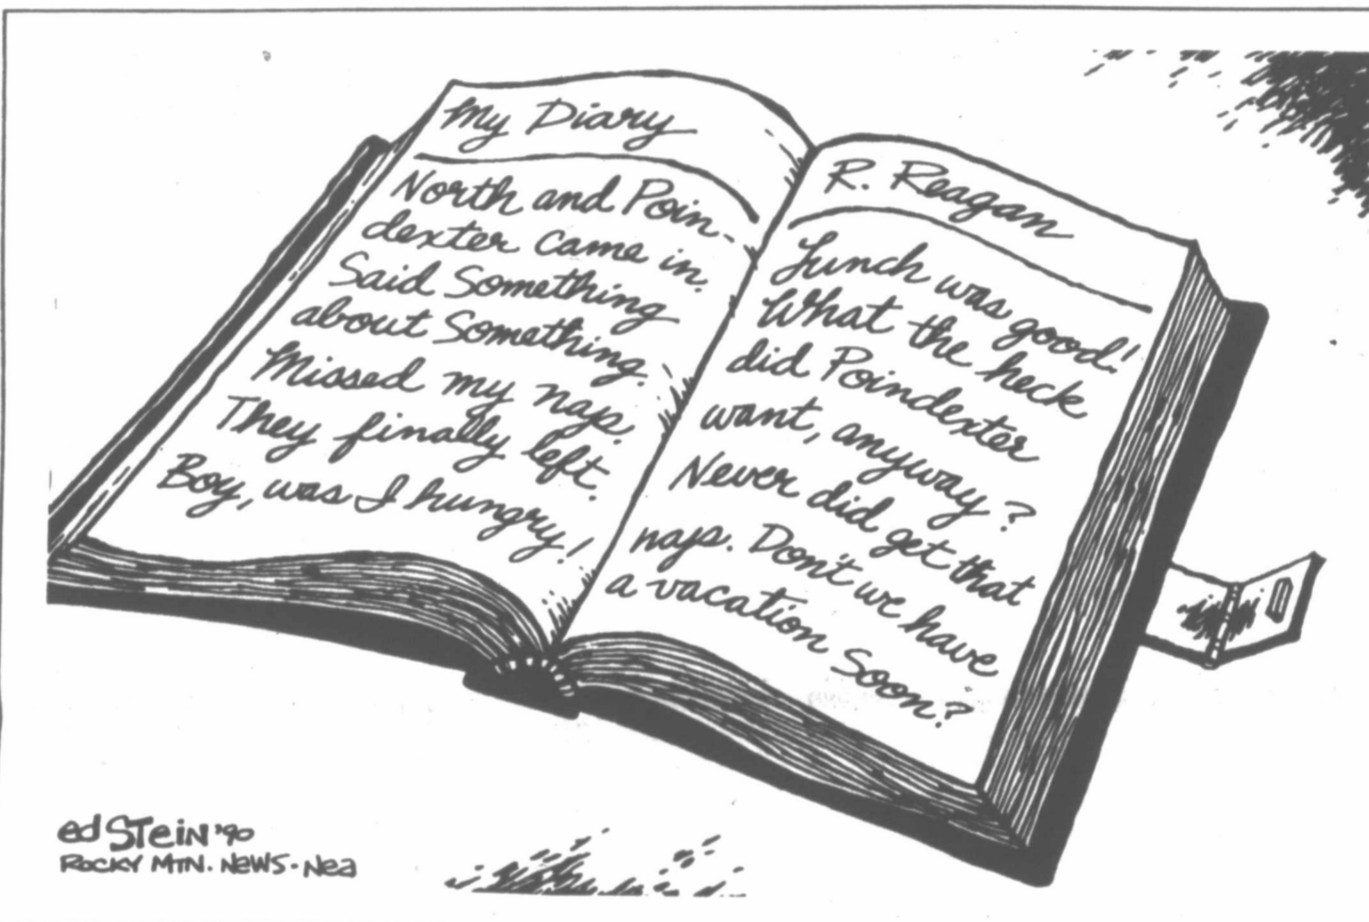 My Diary
North and Poin-
dexter came in.
Said Something
about Something.
Missed my nap.
They finally left.
Boy, was I hungry!
R. Reagan
Lunch was good!
What the heck
did Poindexter
want, anyway?
Never did get that
nap. Don't we have
a vacation soon?
ed STEiN '90
ROCKY MTN. NEWS-NEA